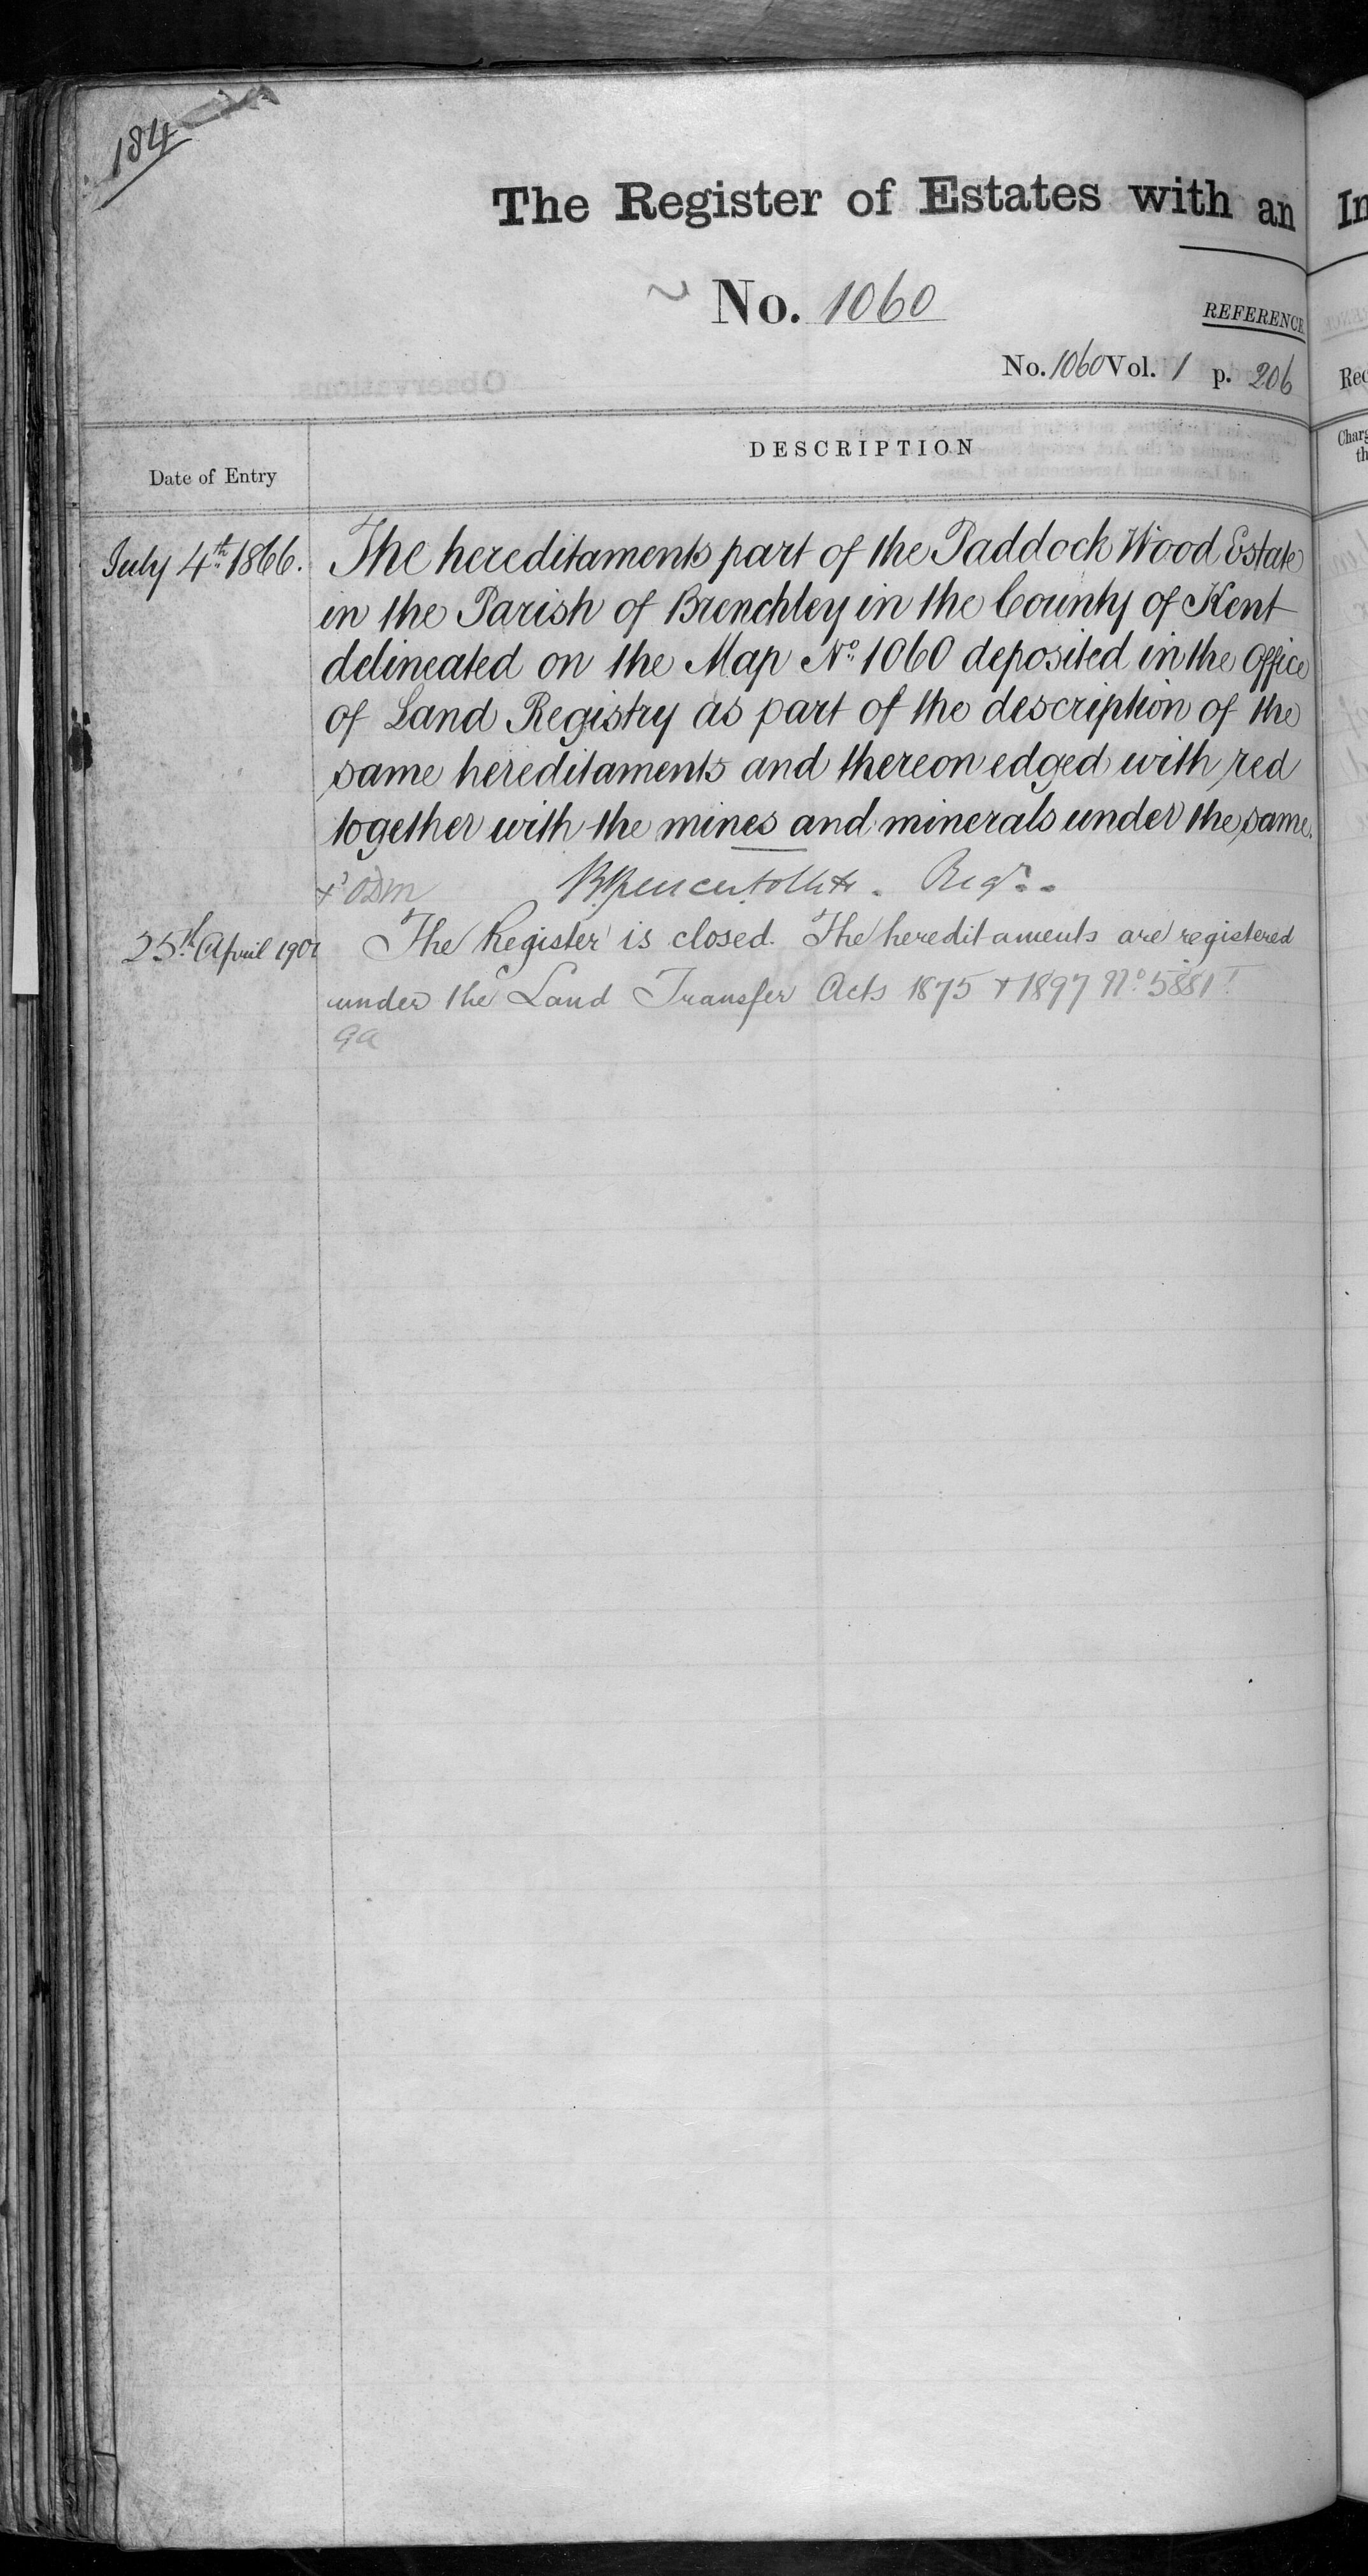 184
The Register of Estates with an
No. 1060
REFERENCE
No. 1060 Vol. 1 p. 206
Date of Entry
DESCRIPTION
July 4th 1866. The hereditaments part of the Paddock Wood Estate
in the Parish of Brenchley in the County of Kent
delineated on the Map No. 1060 deposited in the Office
of Land Registry as part of the description of the
same hereditaments and thereon edged with red
together with the mines and minerals under the same.
Regr.
25th April 1901 The Register is closed. The hereditaments are registered
under the Land Transfer Acts 1875 & 1897 No. 5881